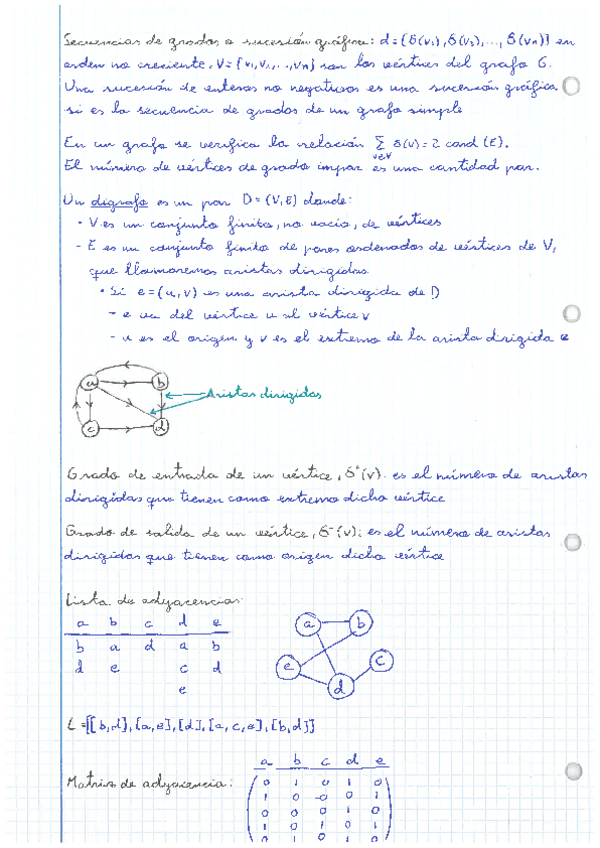 Secuencias de grados o sucesión gráfica: d = {δ(v₁), δ(v₂), ..., δ(vn)} en
orden no creciente, V = {v₁, v₂, ..., vn} son los vértices del grafo G.
Una sucesión de enteros no negativos es una sucesión gráfica
si es la secuencia de grados de un grafo simple
En un grafo se verifica la relación Σ δ(v) = 2 card (E).
v∈V
El número de vértices de grado impar es una cantidad par.
Un digrafo es un par D = (V, E) donde:
- V es un conjunto finito, no vacío, de vértices
- E es un conjunto finito de pares ordenados de vértices de V,
que llamaremos aristas dirigidas
• Si e = (u, v) es una arista dirigida de D
- e va del vértice u al vértice v
- u es el origen y v es el extremo de la arista dirigida e
a b
Aristas dirigidas
c d
Grado de entrada de un vértice, δ⁺(v): es el número de aristas
dirigidas que tienen como extremo dicho vértice
Grado de salida de un vértice, δ⁻(v): es el número de aristas
dirigidas que tienen como origen dicho vértice
Lista de adyacencias:
a b c d e
b a d a b
d e c d
e
a b
e c
d
L = [[b,d], [a,e], [d], [a,c,e], [b,d]]
a b c d e
Matriz de adyacencia:
0 1 0 1 0
1 0 0 0 1
0 0 0 1 0